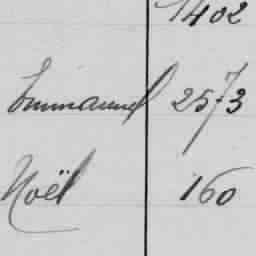 1402
Emmanuel 2573
Noël 160